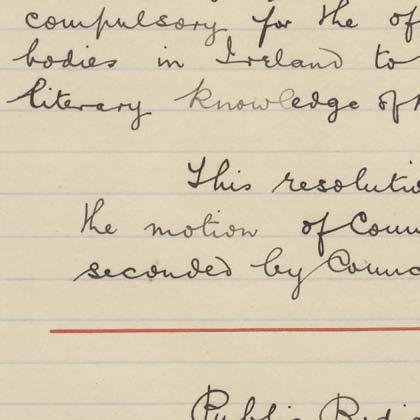 compulsory for the of
bodies in Ireland to
literary knowledge of
This resolutio
the motion of Coun
seconded by Counc
Public